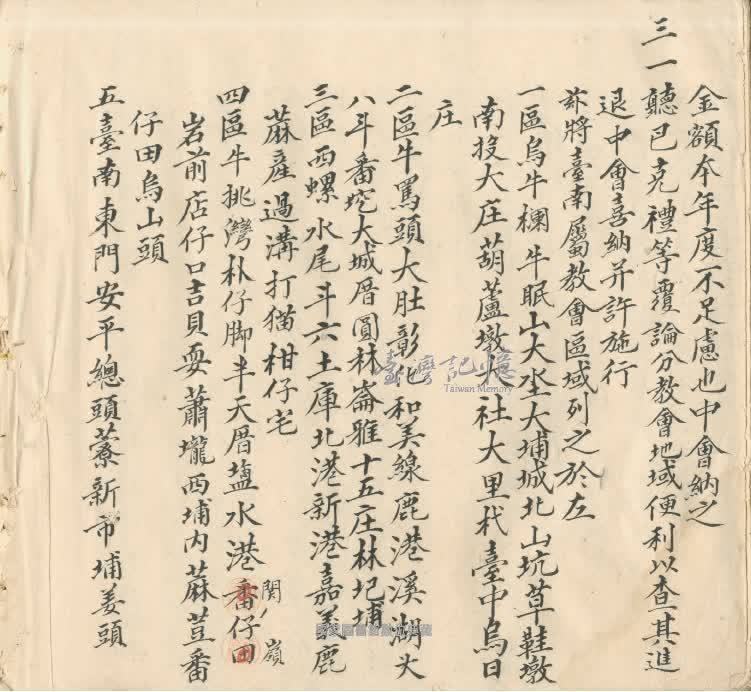 金額本年度不足慮也中會納之
三一聽巴克禮等覆論分教會地域便利以查其進
退中會喜納并許施行
茲將臺南屬教會區域列之於左
一區烏牛欄牛眠山大坔大埔城北山坑草鞋墩
南投大庄葫蘆墩大社大里杙臺中烏日
庄
二區牛罵頭大肚彰化和美線鹿港溪湖大
八斗番挖大城厝圓林崙雅十五庄林圯埔
三區西螺水尾斗六土庫北港新港嘉義鹿
蔴產過溝打猫柑仔宅
四區牛挑灣朴仔脚半天厝塩水港番仔田
関ノ嶺
岩前店仔口吉貝耍蕭壠西埔內蔴荳番
仔田烏山頭
五臺南東門安平總頭藔新市埔姜頭
臺灣記憶
Taiwan Memory